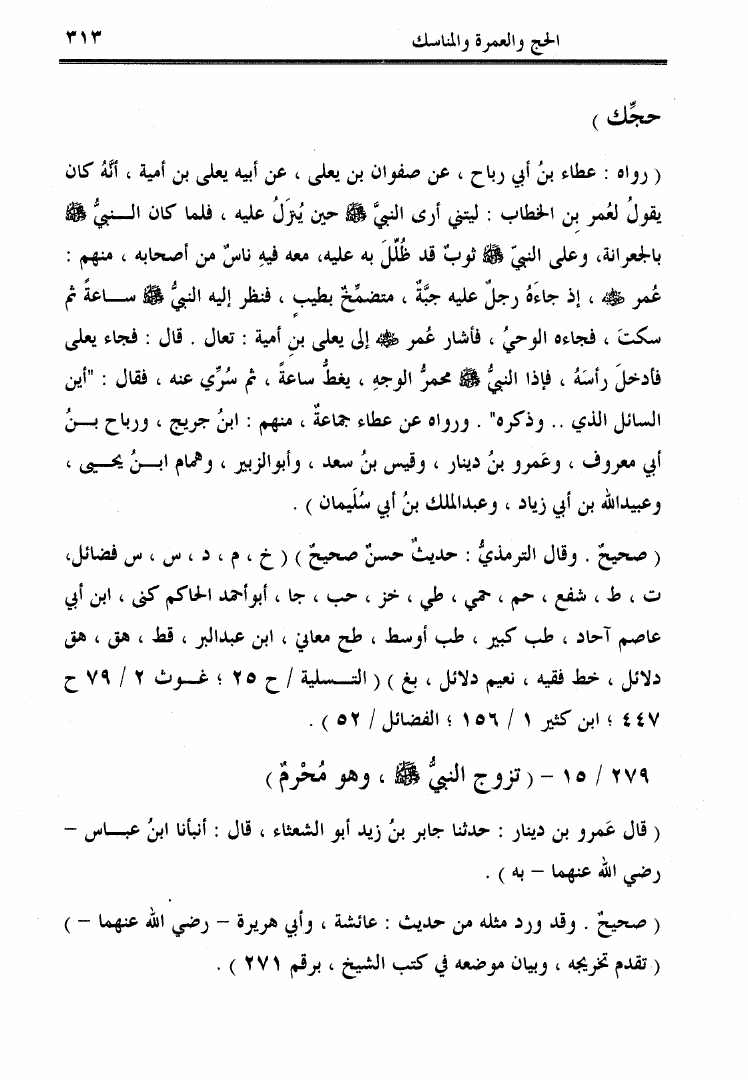 الحج والعمرة والمناسك ٣١٣
حجِّك )
( رواه : عطاء بنُ أبي رباح ، عن صفوان بن يعلى ، عن أبيه يعلى بن أمية ، أنَّهُ كان
يقولُ لعُمر بن الخطاب : ليتني أرى النبيَّ ﷺ حين يُنزَلُ عليه ، فلما كان النبيُّ ﷺ
بالجعرانة، وعلى النبيّ ﷺ ثوبٌ قد ظُلِّلَ به عليه، معه فيهِ ناسٌ من أصحابه ، منهم :
عُمر ﵁ ، إذ جاءَهُ رجلٌ عليه جبَّةٌ ، متضمِّخٌ بطيبٍ ، فنظر إليه النبيُّ ﷺ ساعةً ثم
سكتَ ، فجاءه الوحيُ ، فأشار عُمر ﵁ إلى يعلى بنِ أمية : تعال . قال : فجاء يعلى
فأدخلَ رأسَهُ ، فإذا النبيُّ ﷺ محمرُّ الوجهِ ، يغطُّ ساعةً ، ثم سُرِّي عنه ، فقال : "أين
السائل الذي .. وذكره" . ورواه عن عطاء جماعةٌ ، منهم : ابنُ جريج ، ورباح بنُ
أبي معروف ، وعَمرو بنُ دينار ، وقيس بنُ سعد ، وأبوالزبير ، وهمام ابنُ يحيى ،
وعبيدالله بن أبي زياد ، وعبدالملك بنُ أبي سُلَيمان ) .
( صحيحٌ . وقال الترمذيُّ : حديثٌ حسنٌ صحيحٌ ) ( خ ، م ، د ، س ، س فضائل،
ت ، ط ، شفع ، حم ، حمي ، طي ، خز ، حب ، جا ، أبوأحمد الحاكم كنى ، ابن أبي
عاصم آحاد ، طب كبير ، طب أوسط ، طح معاني ، ابن عبدالبر ، قط ، هق ، هق
دلائل ، خط فقيه ، نعيم دلائل ، بغ ) ( التسلية / ح ٢٥ ؛ غوث ٢ / ٧٩ ح
٤٤٧ ؛ ابن كثير ١ / ١٥٦ ؛ الفضائل / ٥٢ ) .
٢٧٩ / ١٥ – ( تزوج النبيُّ ﷺ ، وهو مُحْرمٌ )
( قال عَمرو بن دينار : حدثنا جابر بنُ زيد أبو الشعثاء ، قال : أنبأنا ابنُ عباس –
رضي الله عنهما – به ) .
( صحيحٌ . وقد ورد مثله من حديث : عائشة ، وأبي هريرة – رضي الله عنهما – )
( تقدم تخريجه ، وبيان موضعه في كتب الشيخ ، برقم ٢٧١ ) .